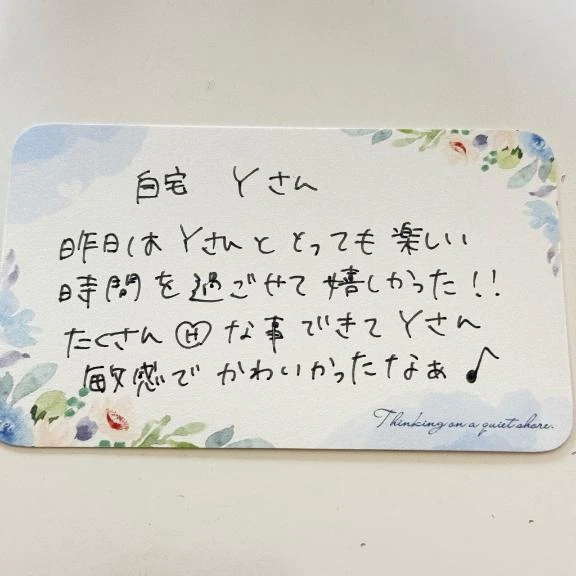 自宅 Yさん
昨日はYさんととっても楽しい
時間を過ごせて嬉しかった!!
たくさんHな事できてYさん
敏感でかわいかったなぁ♪
Thinking on a quiet shore.